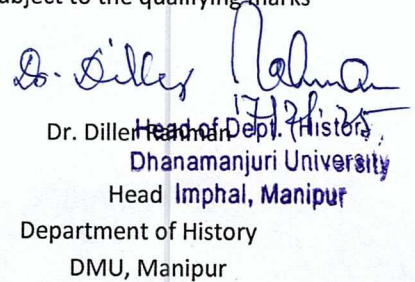 subject to the qualifying marks
Dr. Diller Rahman
17/7/25
Dr. Diller Rahman
Head of Dept. (History)
Dhanamanjuri University
Imphal, Manipur
Head
Department of History
DMU, Manipur